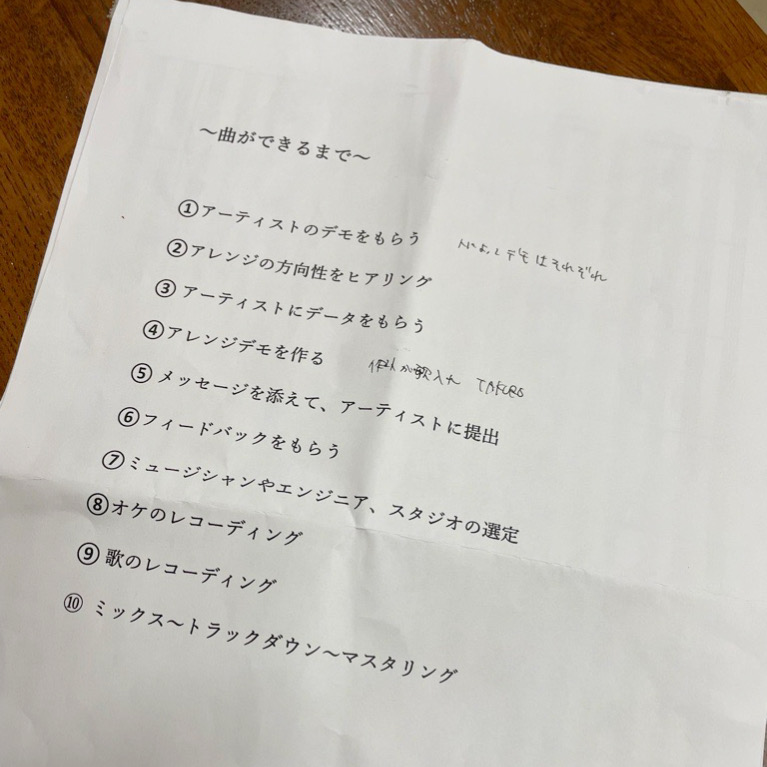 ～曲ができるまで～
①アーティストのデモをもらう 人によってデモはそれぞれ
②アレンジの方向性をヒアリング
③ アーティストにデータをもらう
④アレンジデモを作る 歌入れ TAKURO
⑤ メッセージを添えて、アーティストに提出
⑥フィードバックをもらう
⑦ミュージシャンやエンジニア、スタジオの選定
⑧オケのレコーディング
⑨ 歌のレコーディング
⑩ ミックス～トラックダウン～マスタリング